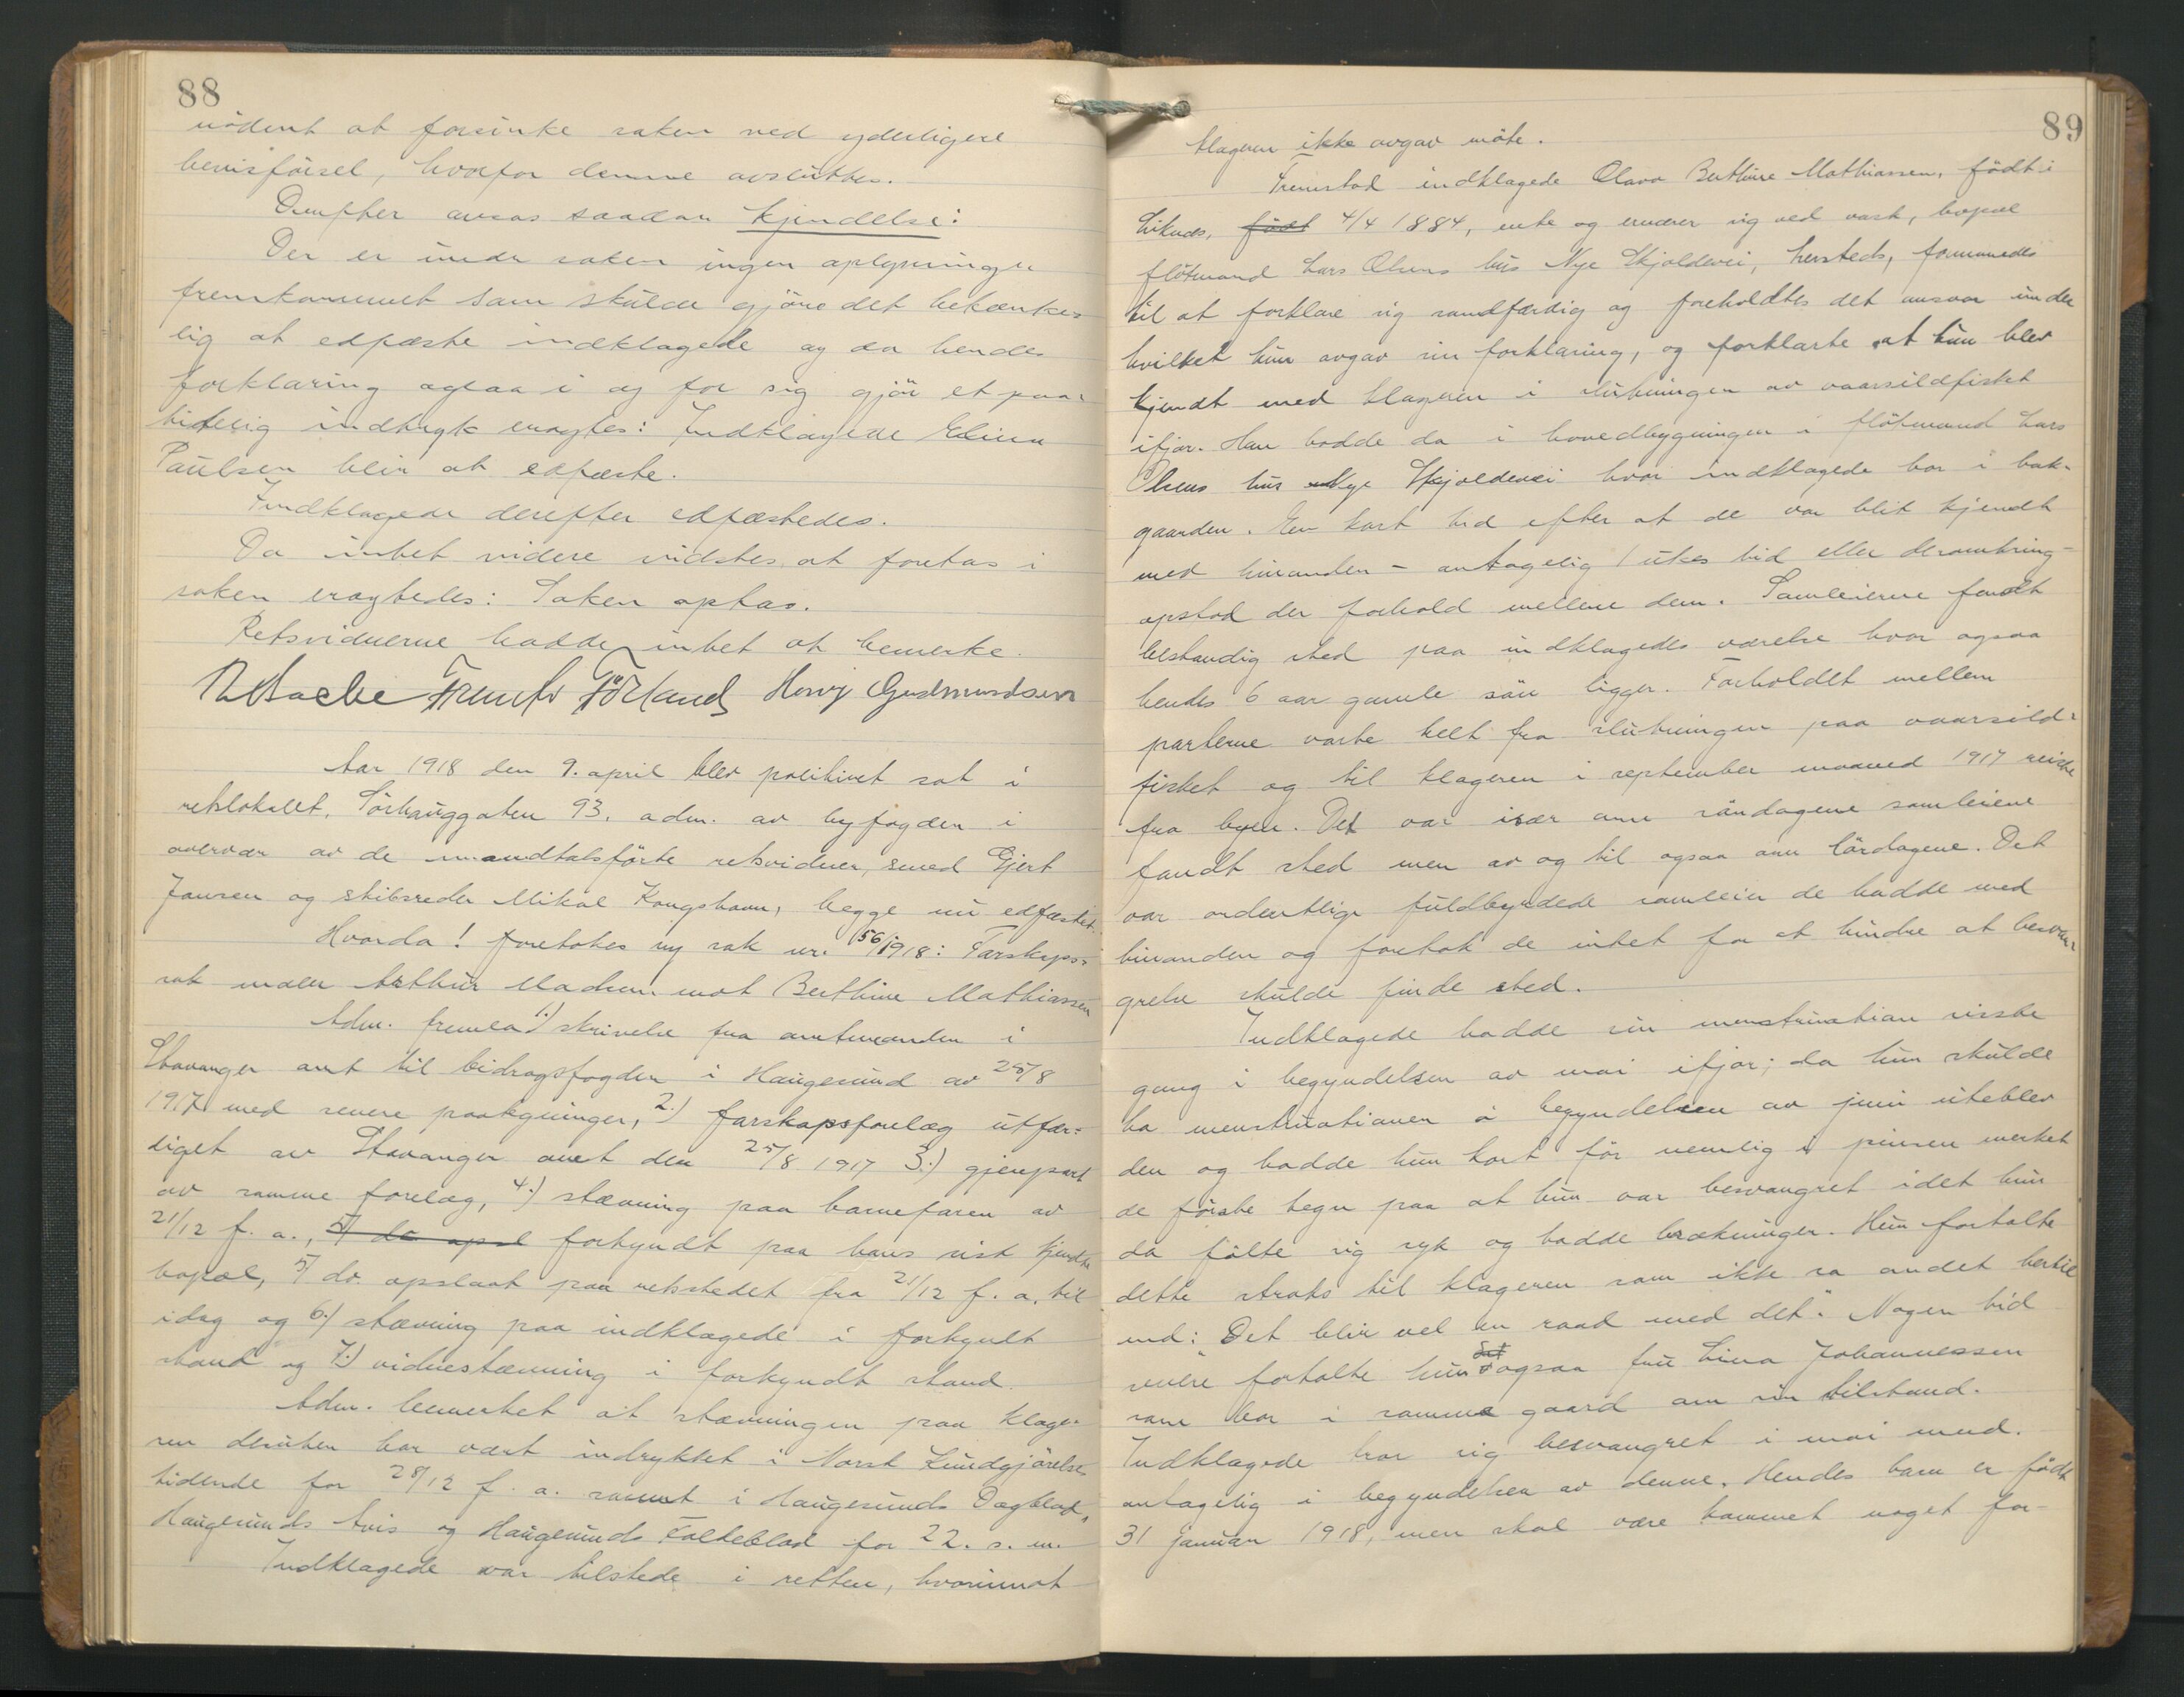 88
nödent at forsinke saken ved yderligere
bevisförsel, hvorfor denne avsluttes.
Derefter avsas saadan kjendelse:
Der er under saken ingen oplysninger
fremkommet som skulde gjöre det betænke-
lig at edfæste indklagede og da hendes
forklaring ogsaa i og for sig gjör et paa-
lidelig indtryk eragtes: Indklagede Elina
Paulsen blir at edfæste.
Indklagede derefter edfæstedes.
Da intet videre vidstes at foretas i
saken eragtedes: Saken optas.
Retsvidnerne hadde intet at bemerke.
Förland Gudmundsen
Aar 1918 den 9. april blev politiret sat i
retslokalet, Sörhauggaten 93. adm. av byfogden i
overvær av de mandtalsförte retsvidner, smed Gjert
Jansen og skibsreder Mikal Kongshavn, begge nu edfæstet.
Hvorda! foretokes ny sak nr. 56/1918: Farskaps-
sak Arthur Madsen mot Berthine Mathiassen
Adm. fremla 1.) skrivelse fra amtmanden i
Stavanger amt til bidragsfogden i Haugesund av 25/8
1917 med senere paategninger, 2.) farskapsforelæg utfær-
diget av Stavanger amt den 25/8 1917 3.) gjenpart
av samme forelæg, 4.) stævning paa barnefaren av
21/12 f. a., 5) do opsl forkyndt paa hans sist kjendte
bopæl, 5) do. opslaat paa retsstedet fra 21/12 f. a. til
idag og 6.) stævning paa indklagede i forkyndt
stand og 7.) vidnestævning i forkyndt stand.
Adm. bemerket at stævningen paa klage-
ren desuten har været indrykket i Norsk Kundgjörelses
tidende for 28/12 f. a. samt i Haugesunds Dagblad,
Haugesunds Avis og Haugesunds Folkeblad for 22. s. m.
Indklagede var tilstede i retten, hvorimot
89
klageren ikke avgav möte.
Fremstod indklagede Olava Berthine Mathiassen, födt i
födt 4/4 1884, enke og ernærer sig ved vask, bopæl
flötmand Lars Olsens hus Nye Skjoldevei, hersteds, formanedes
til at forklare sig sandfærdig og foreholdtes det ansvar under
hvilket hun avgav sin forklaring, og forklarte at hun blev
kjendt med klageren i slutningen av vaarsildfisket
ifjor. Han bodde da i hovedbygningen i flötmand Lars
Olsens hus Nye Skjoldevei hvor indklagede bor i bak-
gaarden. En kort tid efter at de var blit kjendt
med hinanden – antagelig 1 ukes tid eller deromkring –
opstod der forhold mellem dem. Samleierne fandt
bestandig sted paa indklagedes værelse hvor ogsaa
hendes 6 aar gamle sön ligger. Forholdet mellem
parterne varte helt fra slutningen paa vaarsild-
fisket og til klageren i september maaned 1917 reiste
fra byen. Det var især om söndagene samleiene
fandt sted men av og til ogsaa om lördagene. Det
var ordentlige fuldbyrdede samleier de hadde med
hinanden og foretok de intet for at hindre at besvan-
grelse skulde finde sted.
Indklagede hadde sin menstruation sisste
gang i begyndelsen av mai ifjor; da hun skulde
ha menstruationen i begyndelsen av juni uteblev
den og hadde hun kort för nemlig i pinsen merket
de förste tegn paa at hun var besvangret idet hun
da fölte sig syk og hadde brækninger. Hun fortalte
dette straks til klageren som ikke sa andet hertil
end: "Det blir vel en raad med det". Nogen tid
senere fortalte hun det ogsaa fru Lina Johannessen
som bor i samme gaard om sin tilstand.
Indklagede tror sig besvangret i mai mnd.
antagelig i begyndelsen av denne. Hendes barn er födt
31 januar 1918, men skal være kommet noget for-